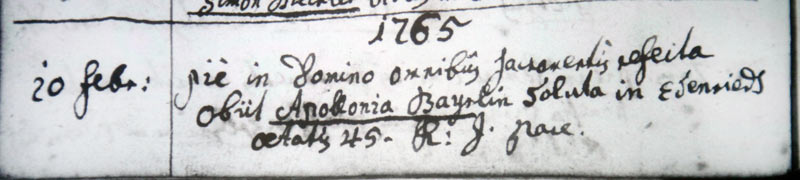 1765
20 febr: piè in Domino omnibus sacramentis refecta
obiit Apollonia Bayrlin Soluta in Edenrieds
ætatis 45. R: J. pace.